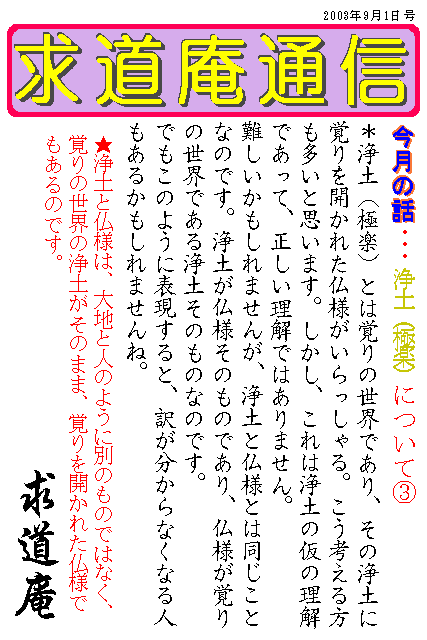 2003年9月1日号
求道庵通信
今月の話・・・浄土（極楽）について③
＊浄土（極楽）とは覚りの世界であり、その浄土に
覚りを開かれた仏様がいらっしゃる。こう考える方
も多いと思います。しかし、これは浄土の仮の理解
であって、正しい理解ではありません。
難しいかもしれませんが、浄土と仏様とは同じこと
なのです。浄土が仏様そのものであり、仏様が覚り
の世界である浄土そのものなのです。
でもこのように表現すると、訳が分からなくなる人
もあるかもしれませんね。
★浄土と仏様は、大地と人のように別のものではなく、
覚りの世界の浄土がそのまま、覚りを開かれた仏様で
もあるのです。
求道庵